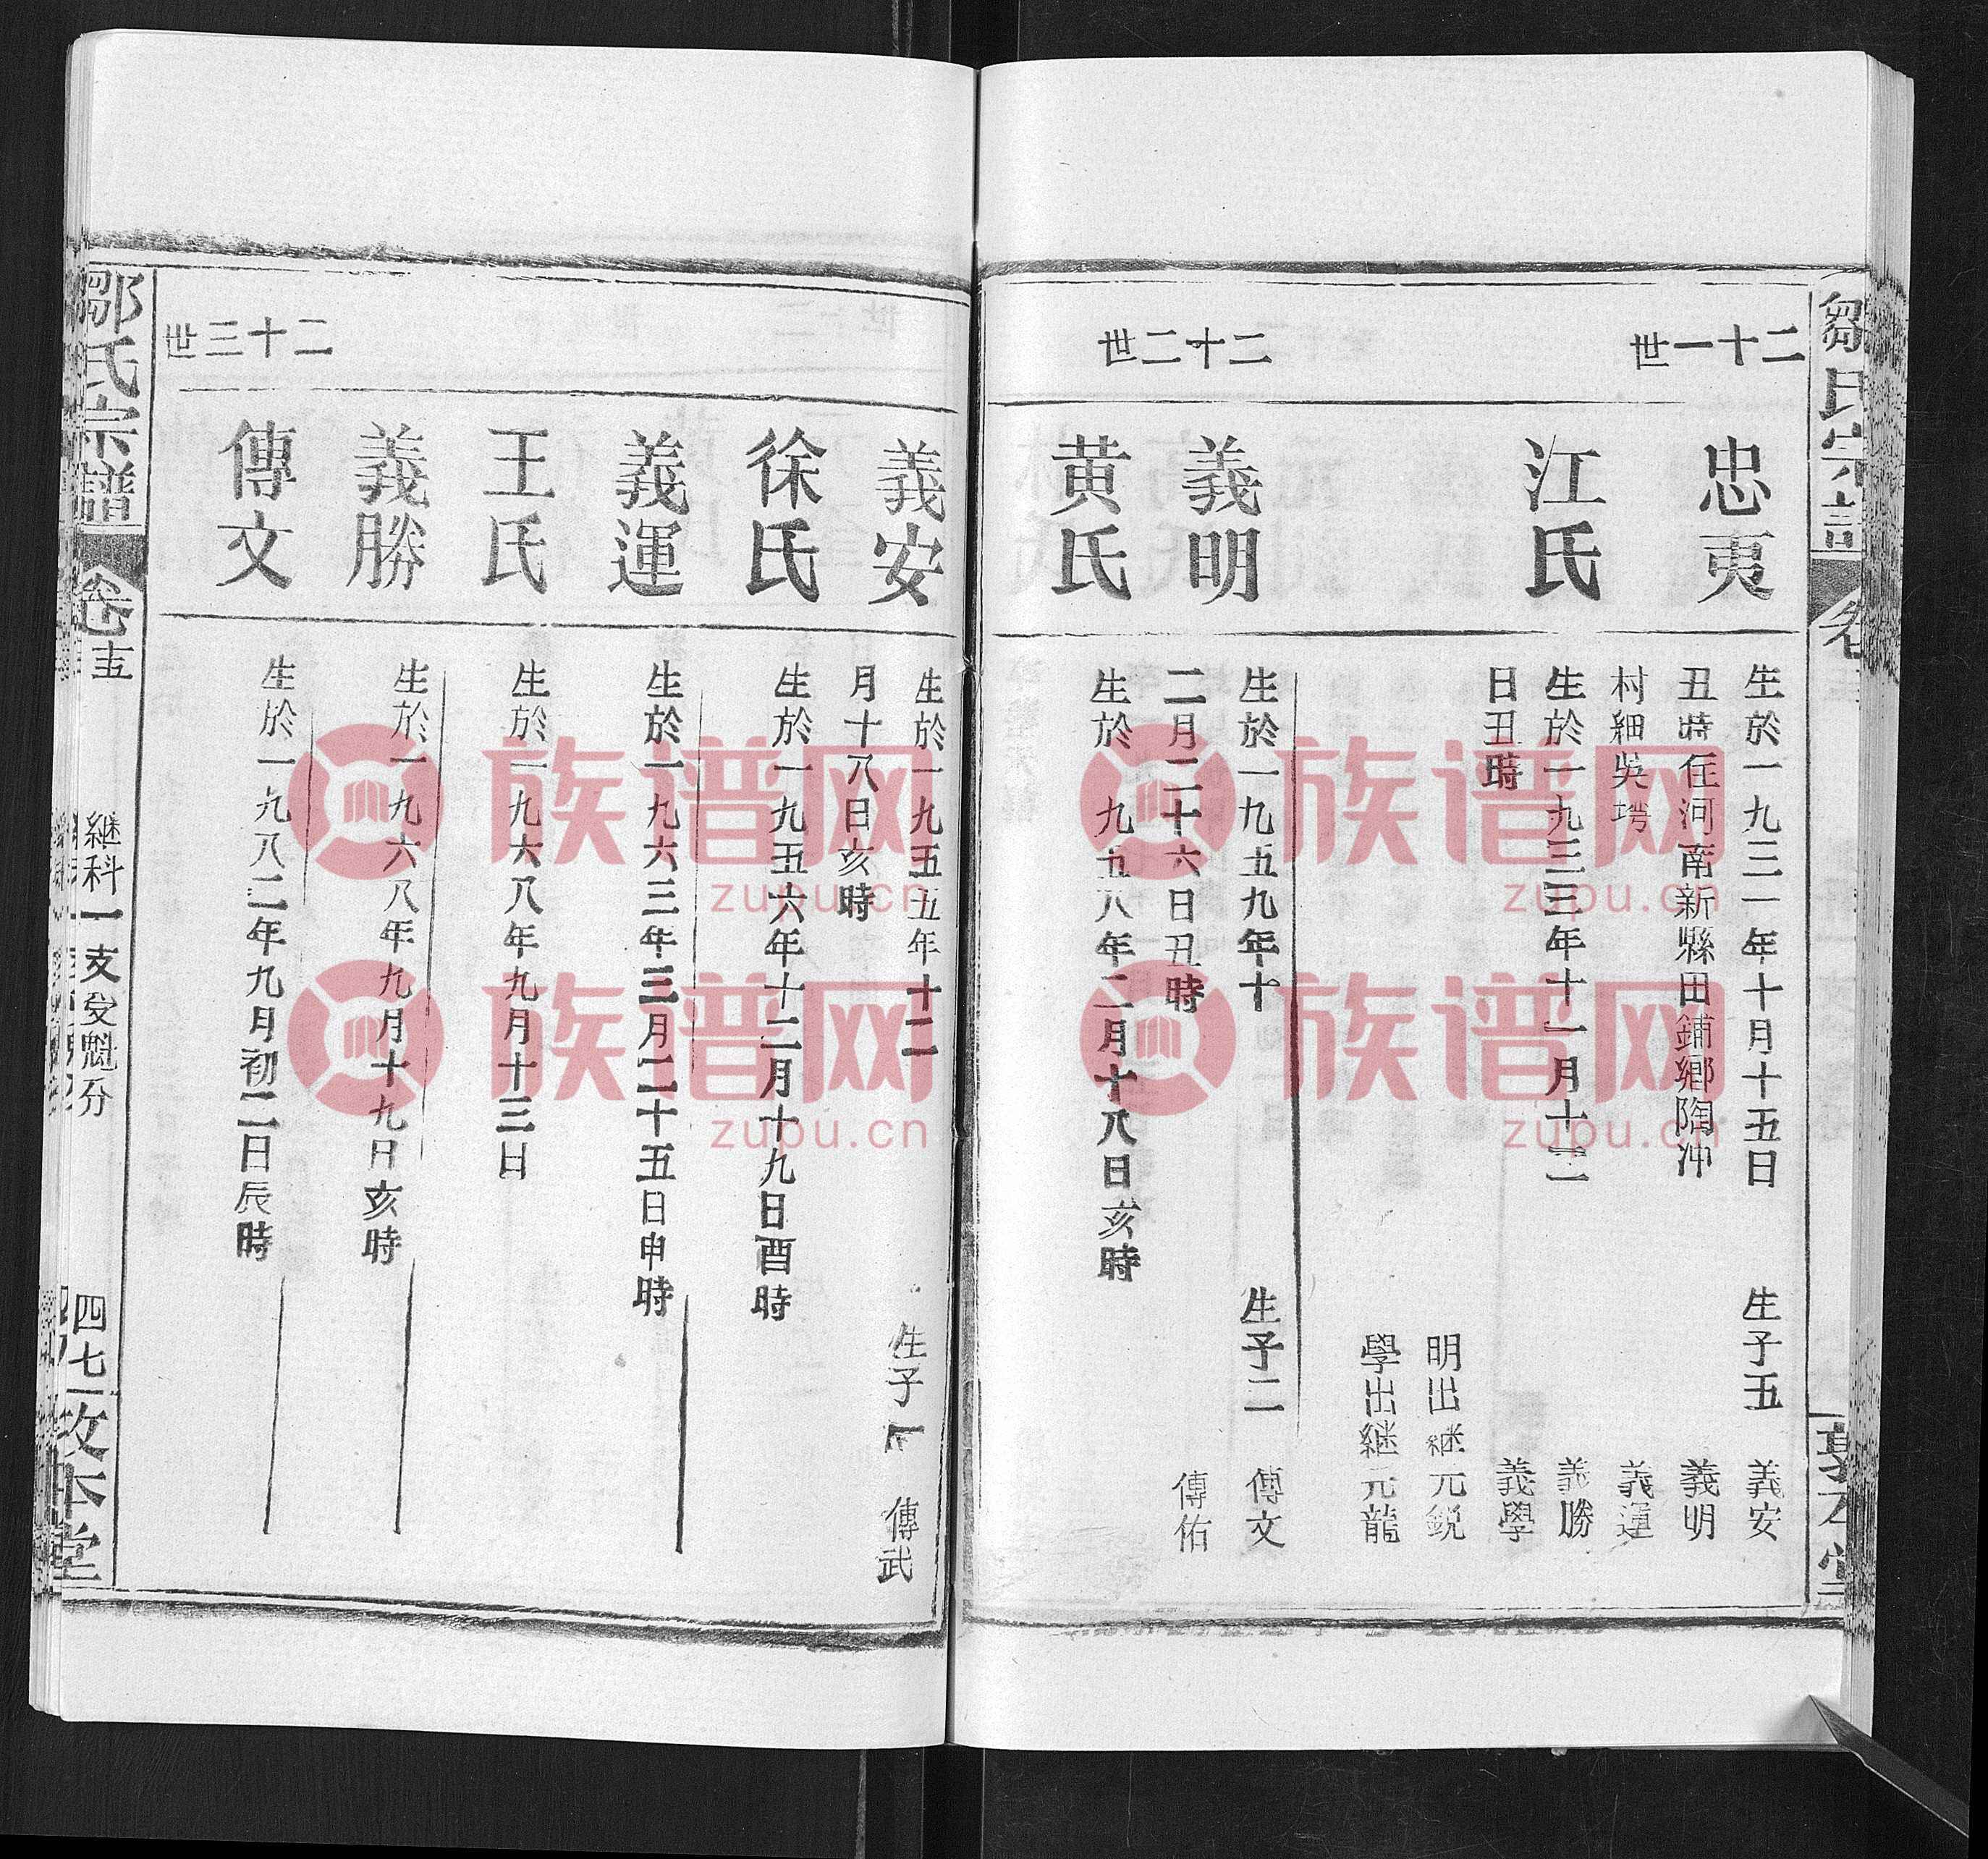 鄒氏宗譜
二十一世
忠夷
生於一九三一年十月十五日
生子五
義安
丑時住河南新縣田鋪鄉陶沖
義明
村細吳塆
義運
江氏
生於一九三三年十一月十二
義勝
日丑時
義學
明出継元鋭
學出継元龍
二十二世
義明
生於一九五九年十
生子二
傳文
二月二十六日丑時
傳佑
黄氏
生於 九五八年二月十八日亥時
義安
生於一九五五年十二
生子一
傳武
月十八日亥時
徐氏
生於一九五六年十二月十九日酉時
義運
生於一九六三年三月二十五日申時
王氏
生於一九六八年九月十三日
義勝
生於一九六八年九月十九日亥時
二十三世
傳文
生於一九八二年九月初二日辰時
鄒氏宗譜
卷十五
継科一支受魁分
四七
敦本堂
族谱网
zupu.cn
族谱网
zupu.cn
族谱网
zupu.cn
族谱网
zupu.cn